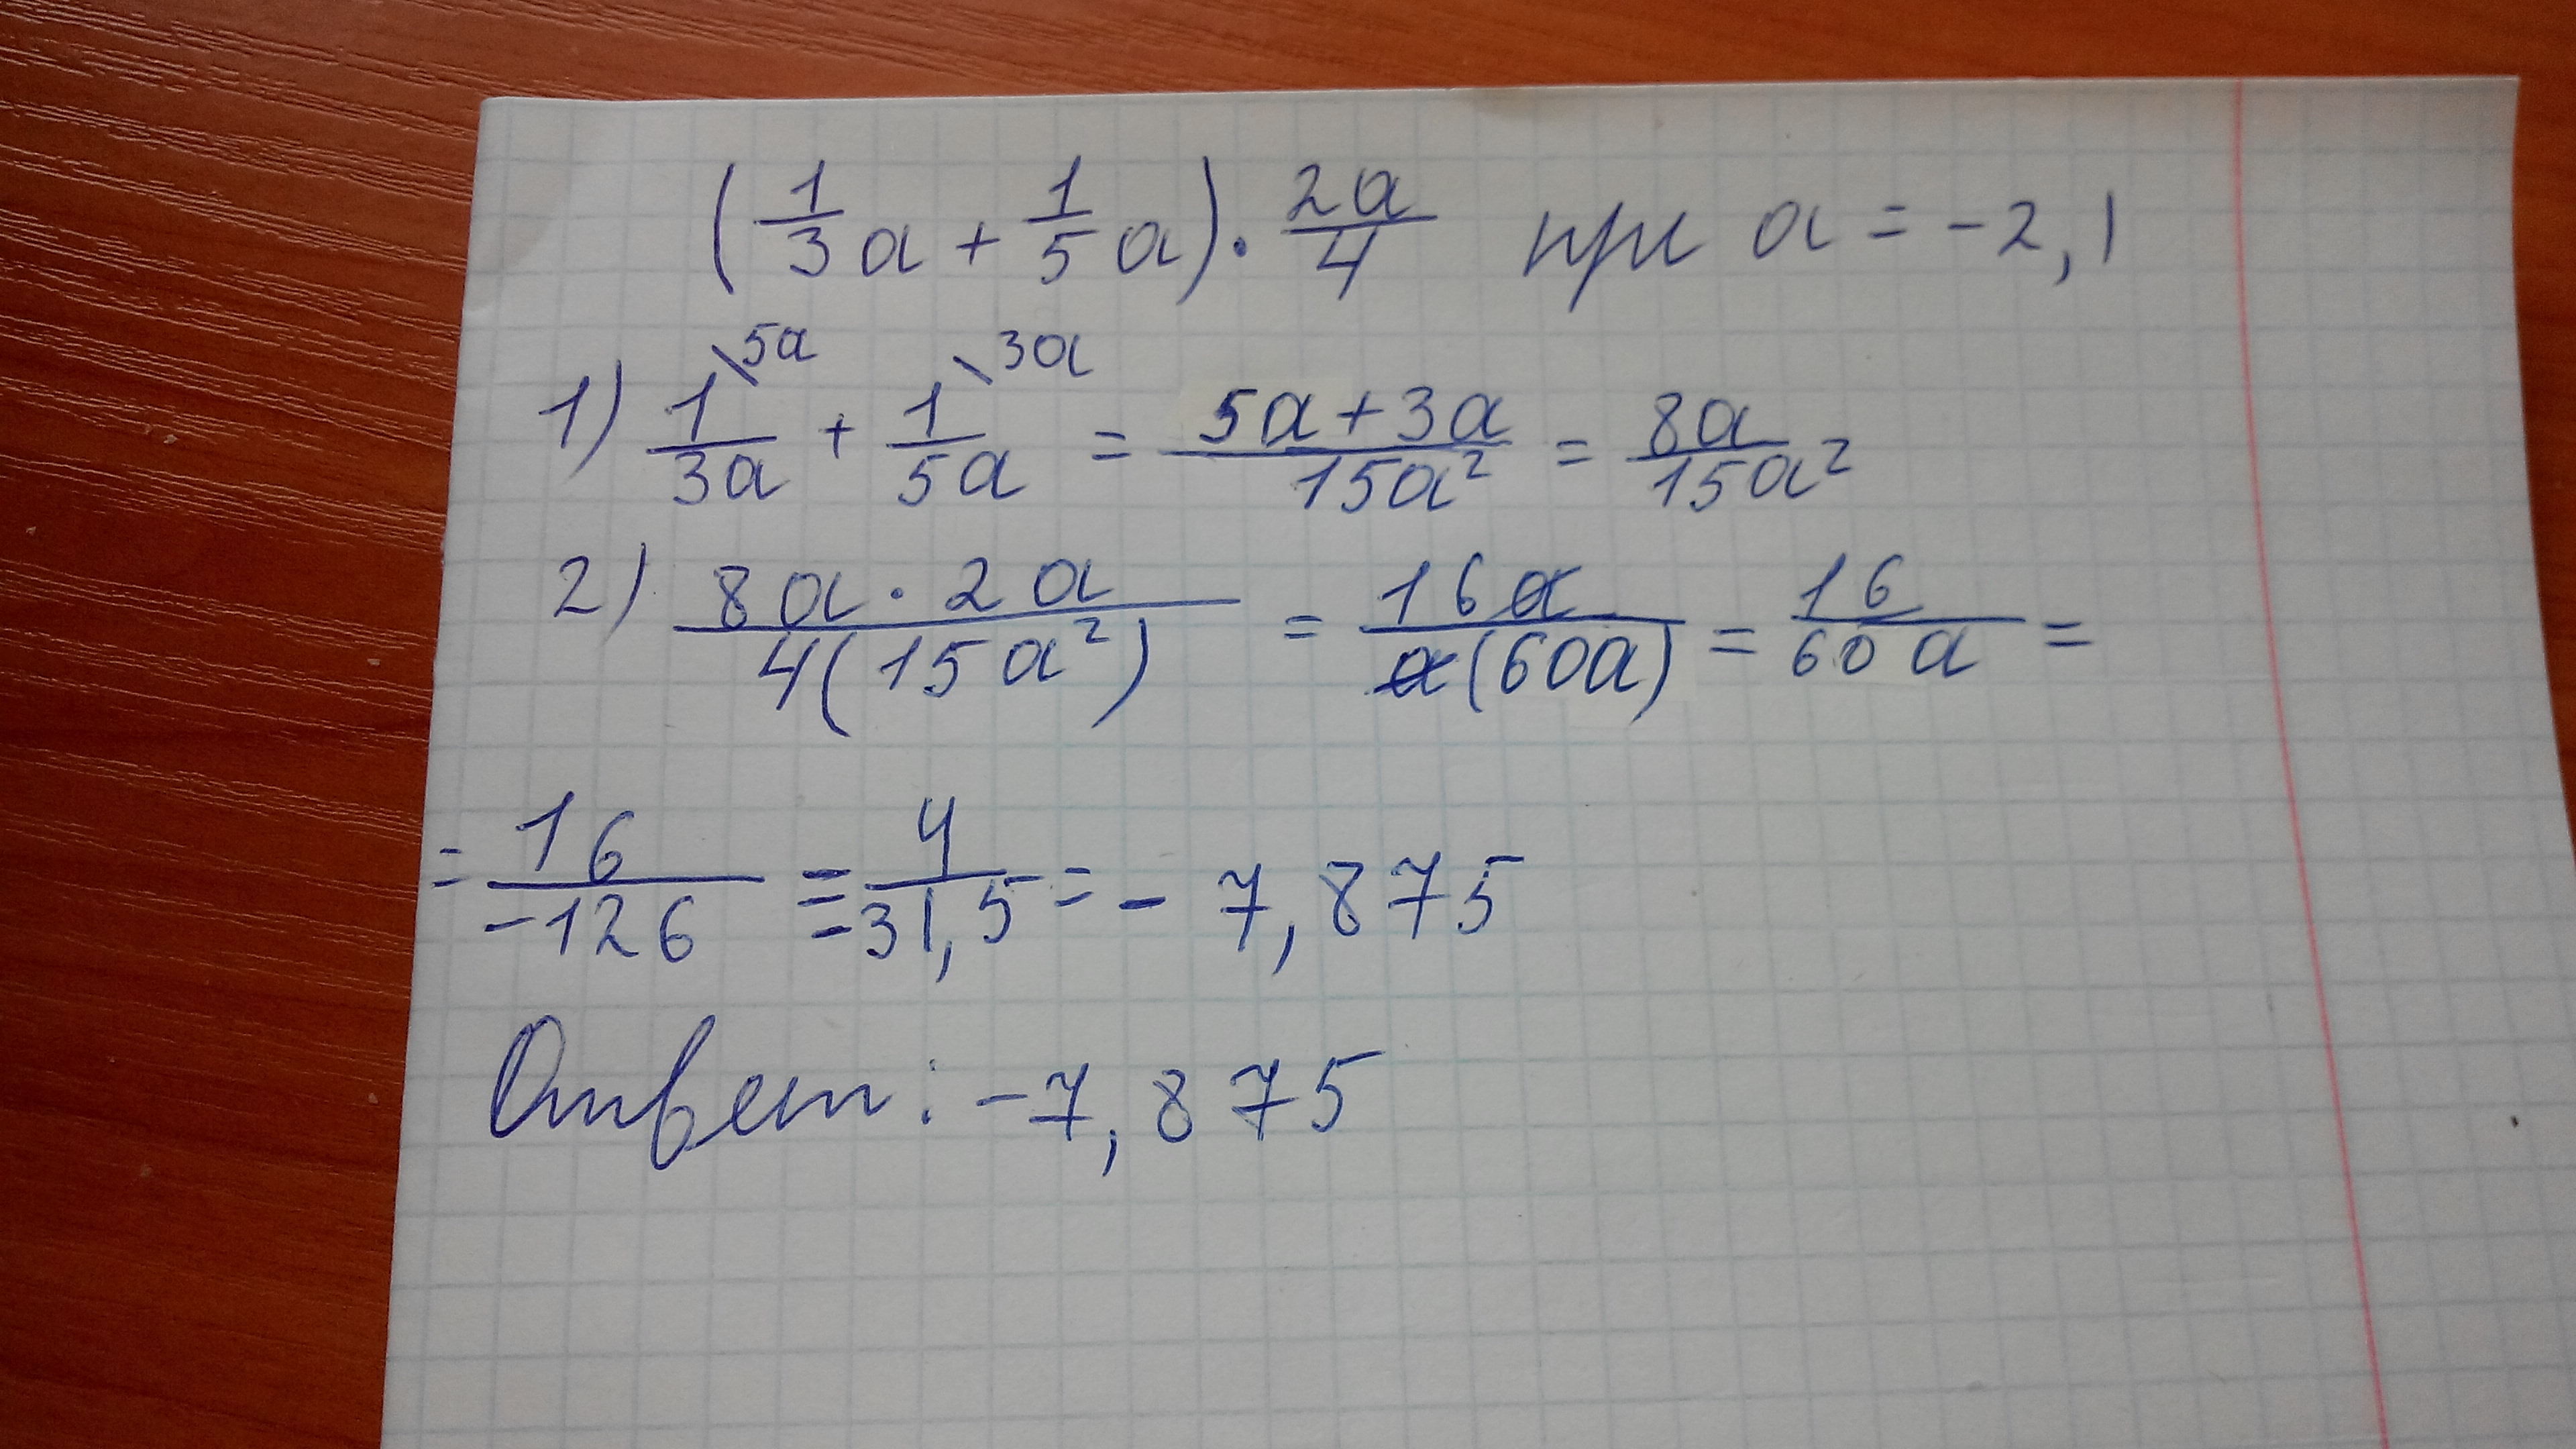 (1/3 a + 1/5 a) · 2a/4 при a = -2,1
1) 1\5a/3a + 1\3a/5a = 5a+3a/15a² = 8a/15a²
2) 8a · 2a/4(15a²) = 16a/a(60a) = 16/60a =
= 16/-126 = 4/31,5 = - 7,875
Ответ: -7,875